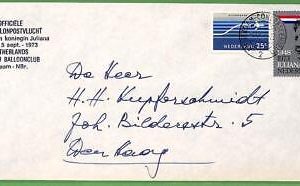 OFFICIËLE
LONPOSTVLUCHT
n koningin Juliana
5 sept. - 1973
THERLANDS
BALLOONCLUB
aarn - Nbr.
NEDERLAND 25
1948
1973
JULIANA
NEDER
De Heer
H. H. Kupferschmidt
Joh. Bilderstr. 5
Den Haag